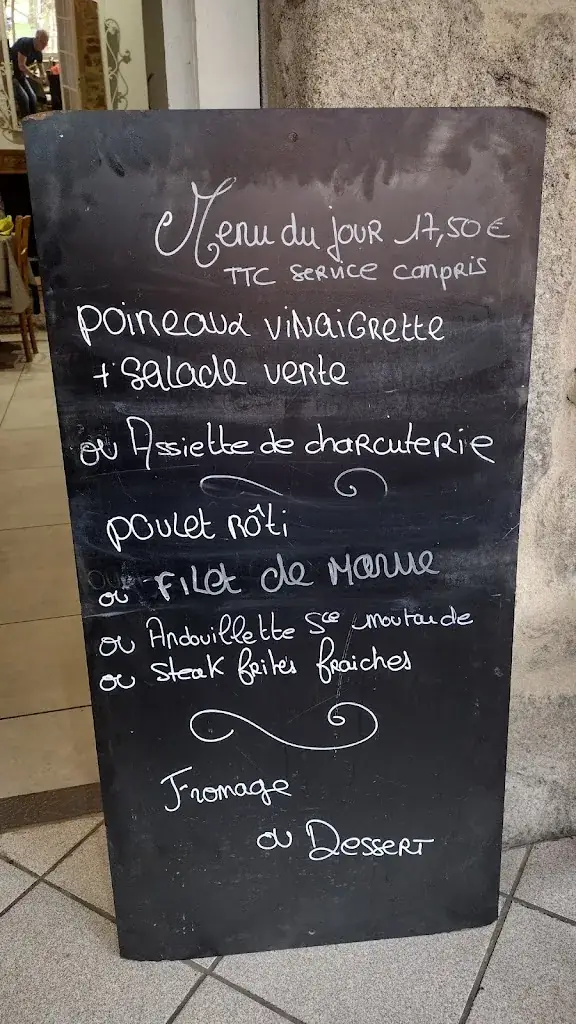 Menu du jour 17,50 €
TTC service compris
Poireaux vinaigrette
+ salade verte
ou Assiette de charcuterie
Poulet rôti
ou Filet de Morue
ou Andouillette Sce moutarde
ou Steak frites fraiches
Fromage
ou Dessert